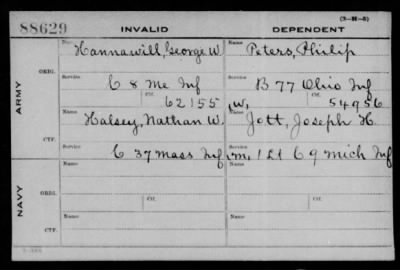 (3-H-5)
88629 INVALID DEPENDENT
ARMY
ORIG.
Name Hannawill, George W. Name Peters, Philip
Service C 8 Me Inf Service B 77 Ohio Inf
Ctf. 62155 W, Ctf. 54956
CTF.
Name Halsey, Nathan W. Name Jott, Joseph H.
Service C 37 Mass Inf Service m. 121 C 9 Mich Inf
NAVY
ORIG.
Name Name
Service Ctf. Service Ctf.
CTF.
Name Name
Service Service